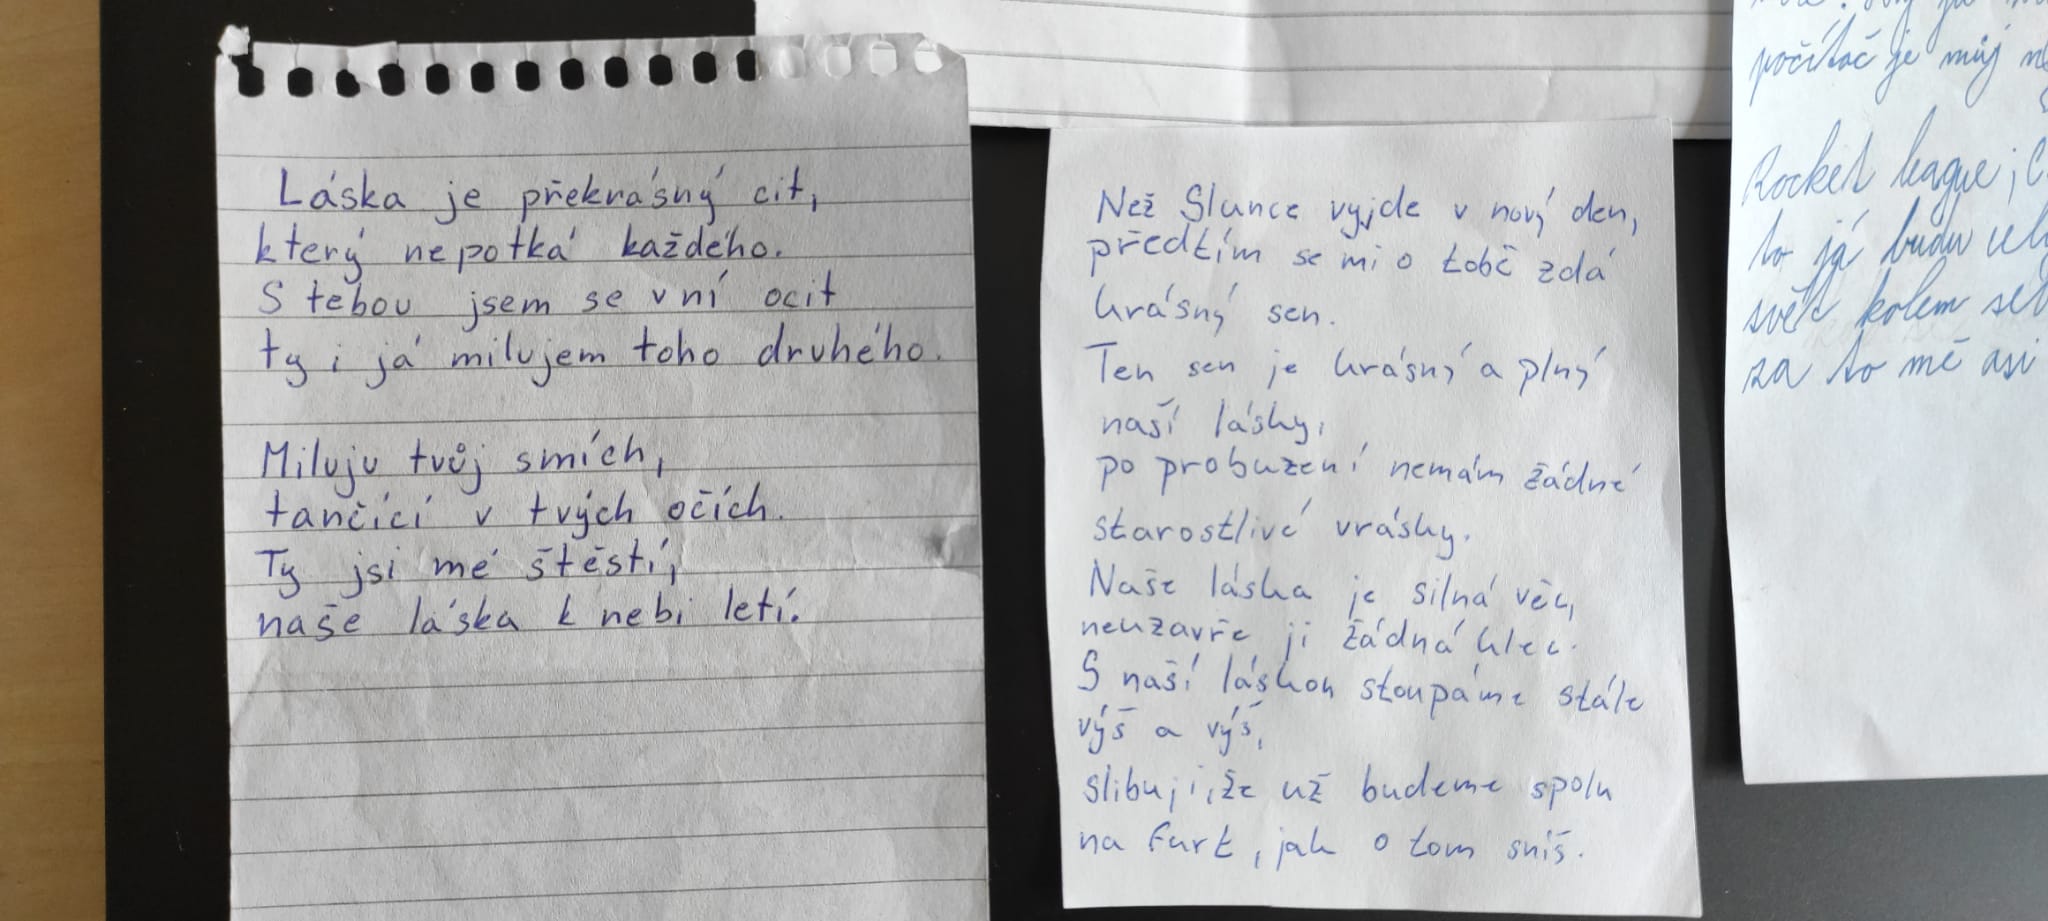 Láska je překrásný cit,
který nepotká každého.
S tebou jsem se v ní ocit
ty i já milujem toho druhého.
Miluju tvůj smích,
tančící v tvých očích.
Ty jsi mé štěstí,
naše láska k nebi letí.
Než Slunce vyjde v nový den,
předtím se mi o tobě zdá
krásný sen.
Ten sen je krásný a plný
naší lásky,
po probuzení nemám žádné
starostlivé vrásky.
Naše láska je silná věc,
neuzavře ji žádná klec.
S naší láskou stoupáme stále
výš a výš,
slibuji, že už budeme spolu
na furt, jak o tom sníš.
počítač je můj
Rocket league,
to já budu
svět kolem
za to mě asi